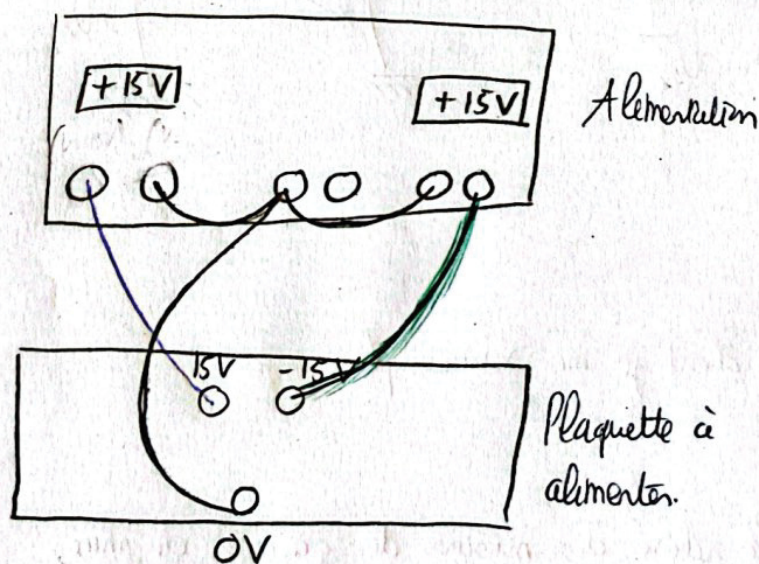 +15V
+15V
Alimentation
15V
-15V
Plaquette à
alimenter.
0V